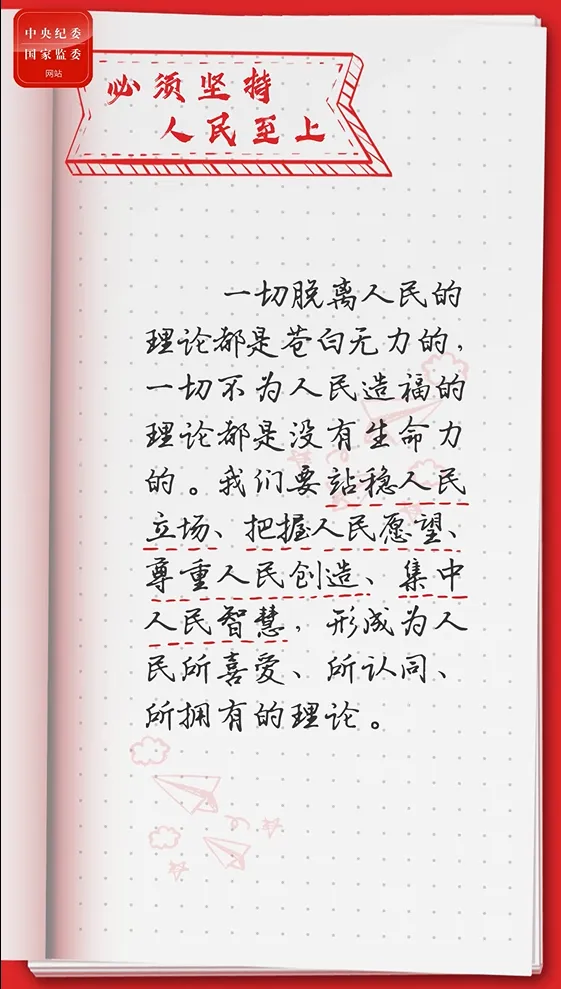 中央纪委
国家监委
网站
必须坚持
人民至上
一切脱离人民的
理论都是苍白无力的，
一切不为人民造福的
理论都是没有生命力
的。我们要站稳人民
立场、把握人民愿望、
尊重人民创造、集中
人民智慧，形成为人
民所喜爱、所认同、
所拥有的理论。